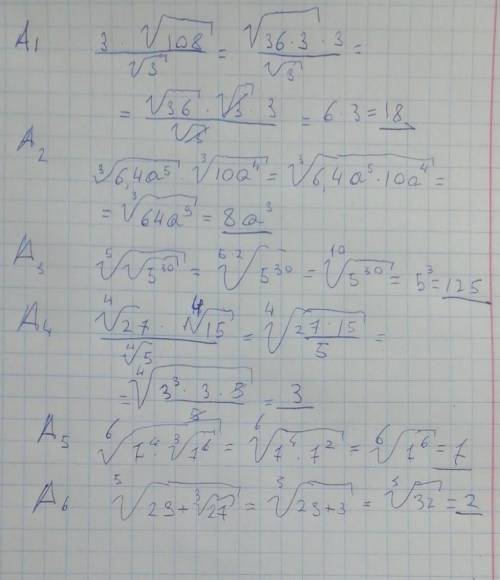 A1 (3 · √108)/√3 = (√(36 · 3) · 3)/√3 =
= (√36 · √3 · 3)/√3 = 6 · 3 = 18
A2
∛(6,4a⁵) ∛(10a⁴) = ∛(6,4a⁵ · 10a⁴) =
= ∛(64a⁹) = 8a³
A3 ⁵√(√(5³⁰)) = ⁵·²√(5³⁰) = ¹⁰√(5³⁰) = 5³ = 125
A4 (⁴√27 · ⁴√15)/⁴√5 = ⁴√((27 · 15)/5) =
= ⁴√((3³ · 3 · 5)/5) = 3
A5 ⁶√(7⁴ · ∛(7⁶)) = ⁶√(7⁴ · 7²) = ⁶√(7⁶) = 7
A6 ⁵√(29 + ∛27) = ⁵√(29 + 3) = ⁵√32 = 2